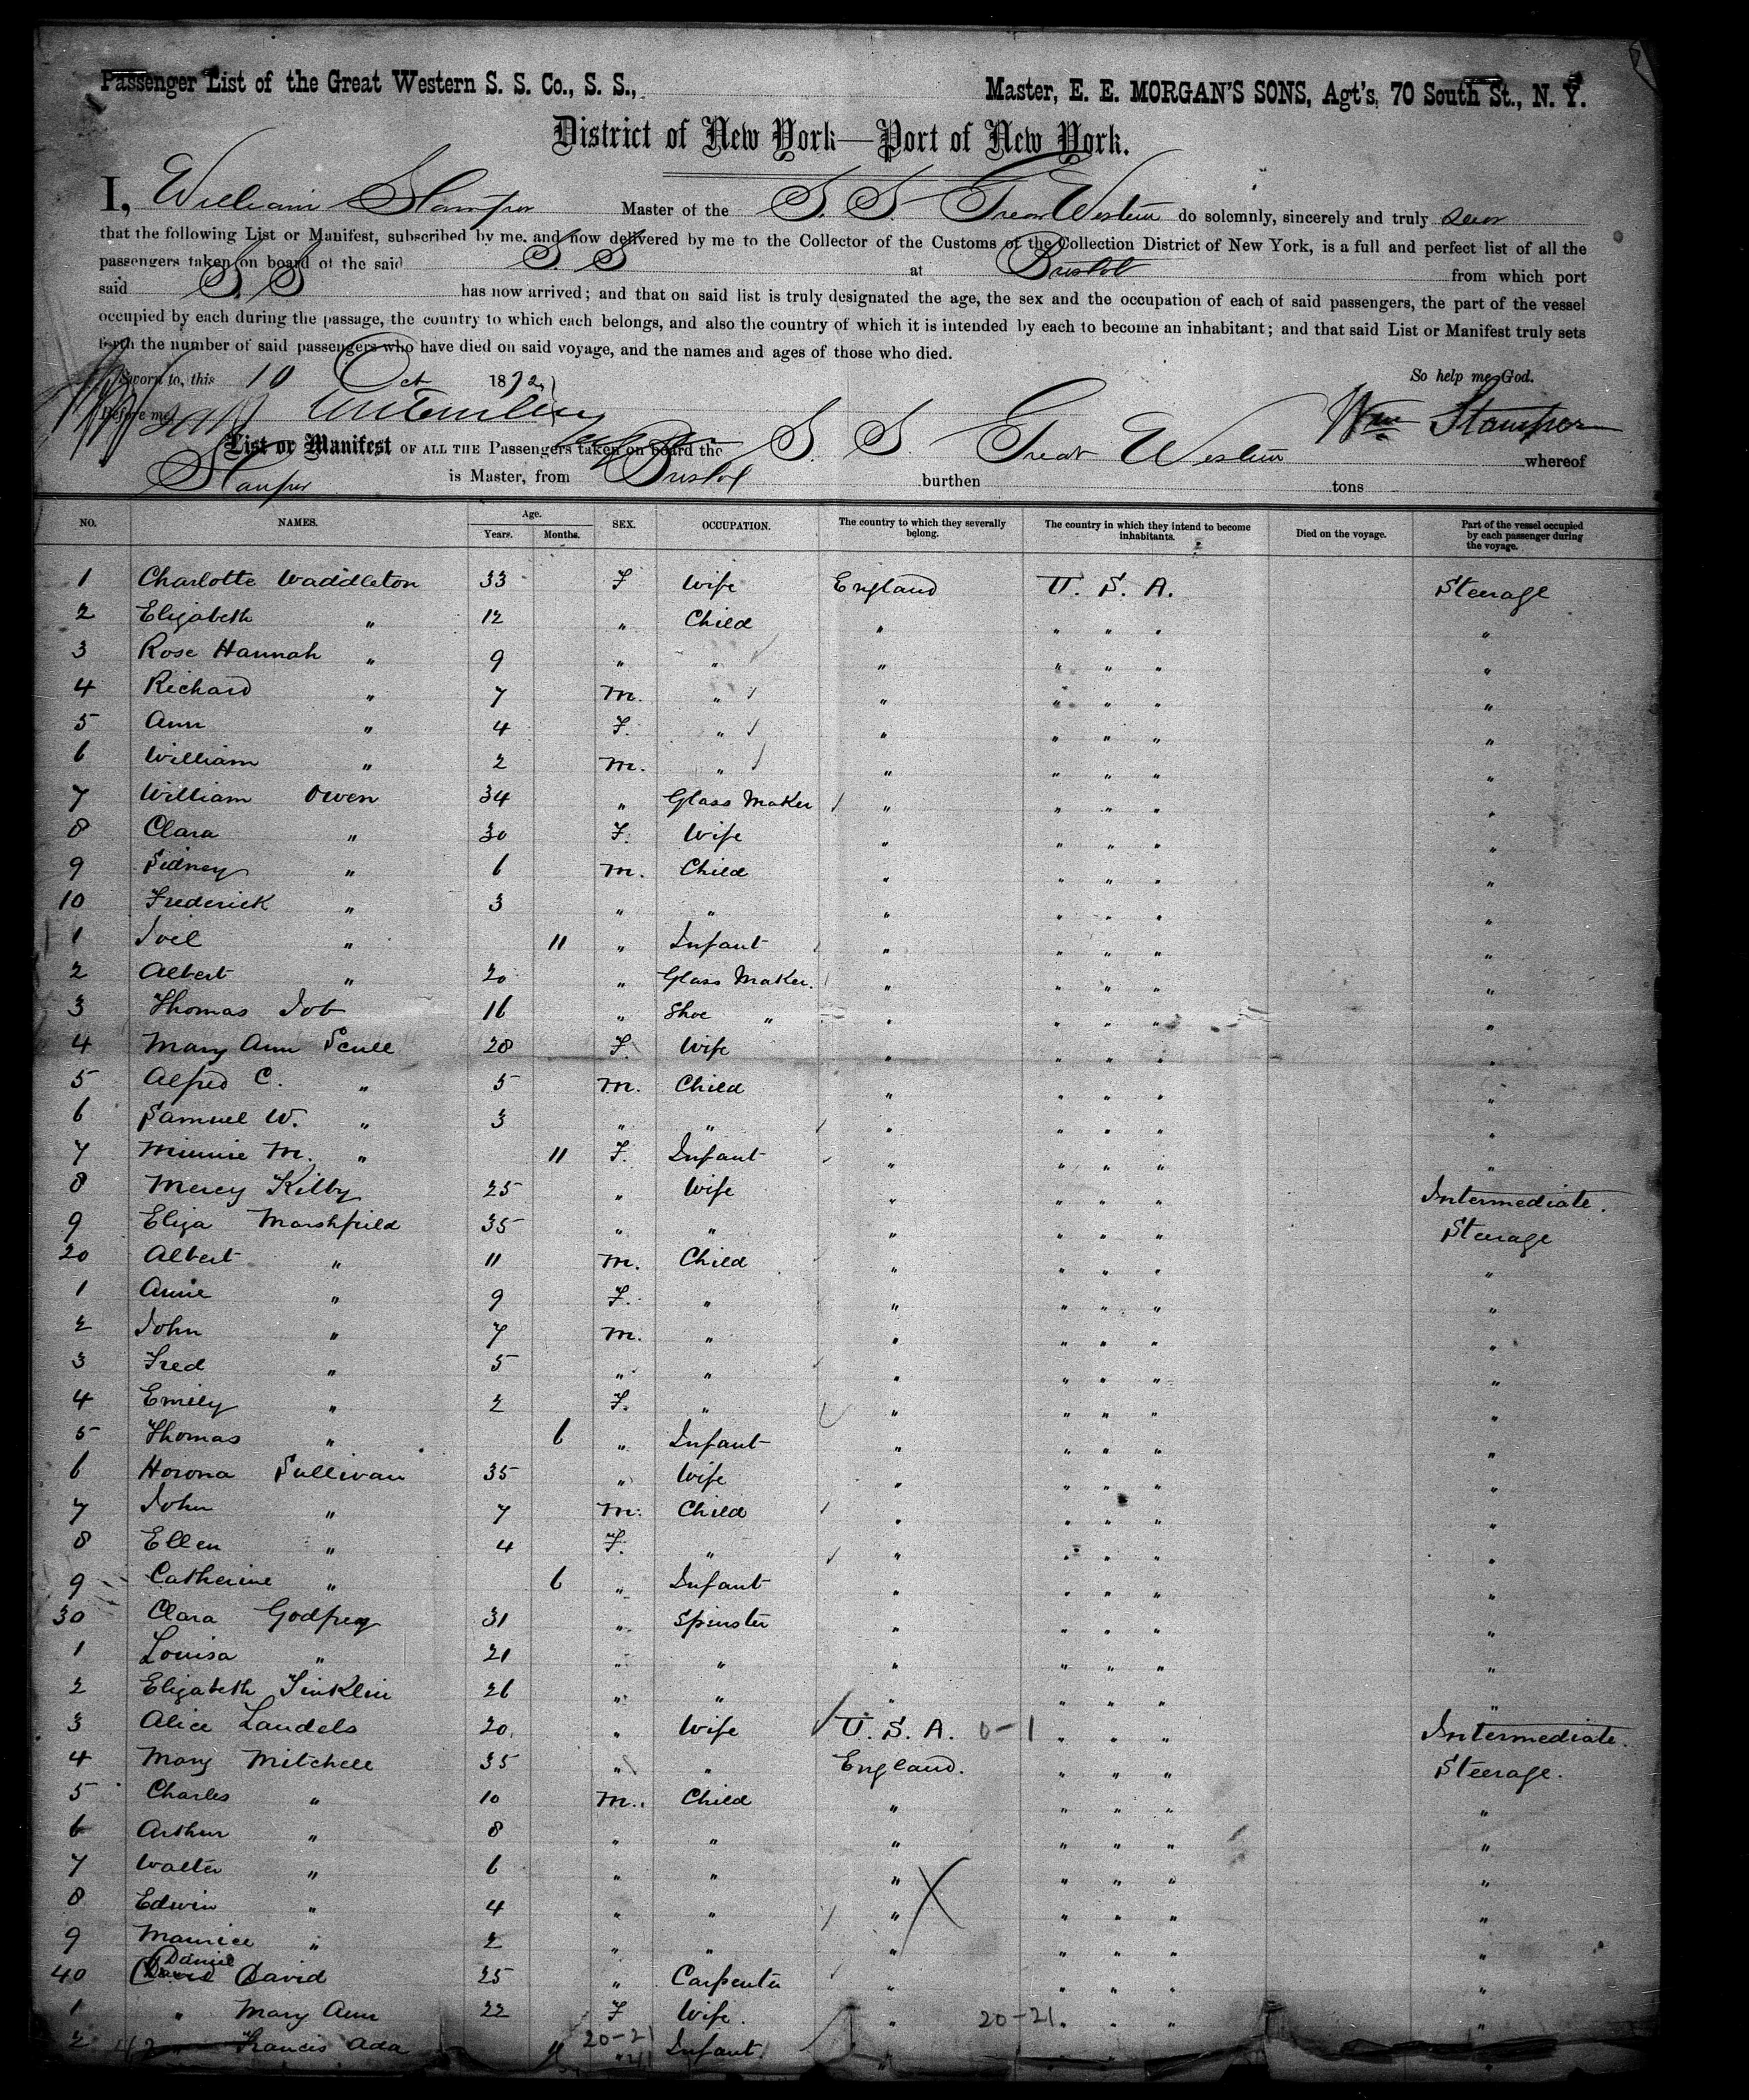 Passenger List of the Great Western S. S. Co., S. S., Master, E. E. MORGAN'S SONS, Agt's, 70 South St., N. Y.
District of New York—Port of New York.
I, William Stamper Master of the S. S Great Western do solemnly, sincerely and truly swear
that the following List or Manifest, subscribed by me, and now delivered by me to the Collector of the Customs of the Collection District of New York, is a full and perfect list of all the
passengers taken on board of the said S. S at Bristol from which port
said S. S has now arrived; and that on said list is truly designated the age, the sex and the occupation of each of said passengers, the part of the vessel
occupied by each during the passage, the country to which each belongs, and also the country of which it is intended by each to become an inhabitant; and that said List or Manifest truly sets
forth the number of said passengers who have died on said voyage, and the names and ages of those who died.
Sworn to, this 10 Oct 187 So help me God.
Before me Wm Stamper
List or Manifest OF ALL THE Passengers taken on board the S. S. Great Western whereof
Stamper is Master, from Bristol burthen tons
NO. NAMES. Age. Years. Months. SEX. OCCUPATION. The country to which they severally belong. The country in which they intend to become inhabitants. Died on the voyage. Part of the vessel occupied by each passenger during the voyage.
1 Charlotte Waddleton 33 F Wife England U. S. A. Steerage
2 Elizabeth " 12 " Child " " " " "
3 Rose Hannah " 9 " " " " " " "
4 Richard " 7 M. " " " " " "
5 Ann " 4 F. " " " " " "
6 William " 2 M. " " " " " "
7 William Owen 34 " Glass Maker " " " " "
8 Clara " 30 F. Wife " " " " "
9 Sidney " 6 M. Child " " " " "
10 Frederick " 3 " " " " " " "
1 Joel " 11 " Infant " " " " "
2 Albert " 20 " Glass Maker. " " " " "
3 Thomas Job 16 " Shoe " " " " " "
4 Mary Ann Scull 28 F. Wife " " " " "
5 Alfred C. " 5 M. Child " " " " "
6 Samuel W. " 3 " " " " " " "
7 Minnie M. " 11 F. Infant " " " " "
8 Mercy Kilby 25 " Wife " " " " Intermediate.
9 Eliza Marshfield 35 " " " " " " Steerage
20 Albert " 11 M. Child " " " " "
1 Annie " 9 F. " " " " " "
2 John " 7 M. " " " " " "
3 Fred " 5 " " " " " " "
4 Emily " 2 F. " " " " " "
5 Thomas " 6 " Infant " " " " "
6 Honona Sullivan 35 " Wife " " " " "
7 John " 7 M. Child " " " " "
8 Ellen " 4 F. " " " " " "
9 Catherine " 6 " Infant " " " " "
30 Clara Godfrey 31 " Spinster " " " " "
1 Louisa " 21 " " " " " " "
2 Elizabeth Tinklin 26 " " " " " " "
3 Alice Landels 20 " Wife U. S. A. 0-1 " " " Intermediate.
4 Mary Mitchell 35 " " England. " " " Steerage.
5 Charles " 10 M. Child " " " " "
6 Arthur " 8 " " " " " " "
7 Walter " 6 " " " " " " "
8 Edwin " 4 " " " " " " "
9 Maurice " 2 " " " " " " "
40 Daniel David 25 " Carpenter " " " " "
1 " Mary Ann 22 F Wife. " 20-21 " " " "
2 " Francis Ada 11 20-21 " Infant. " "